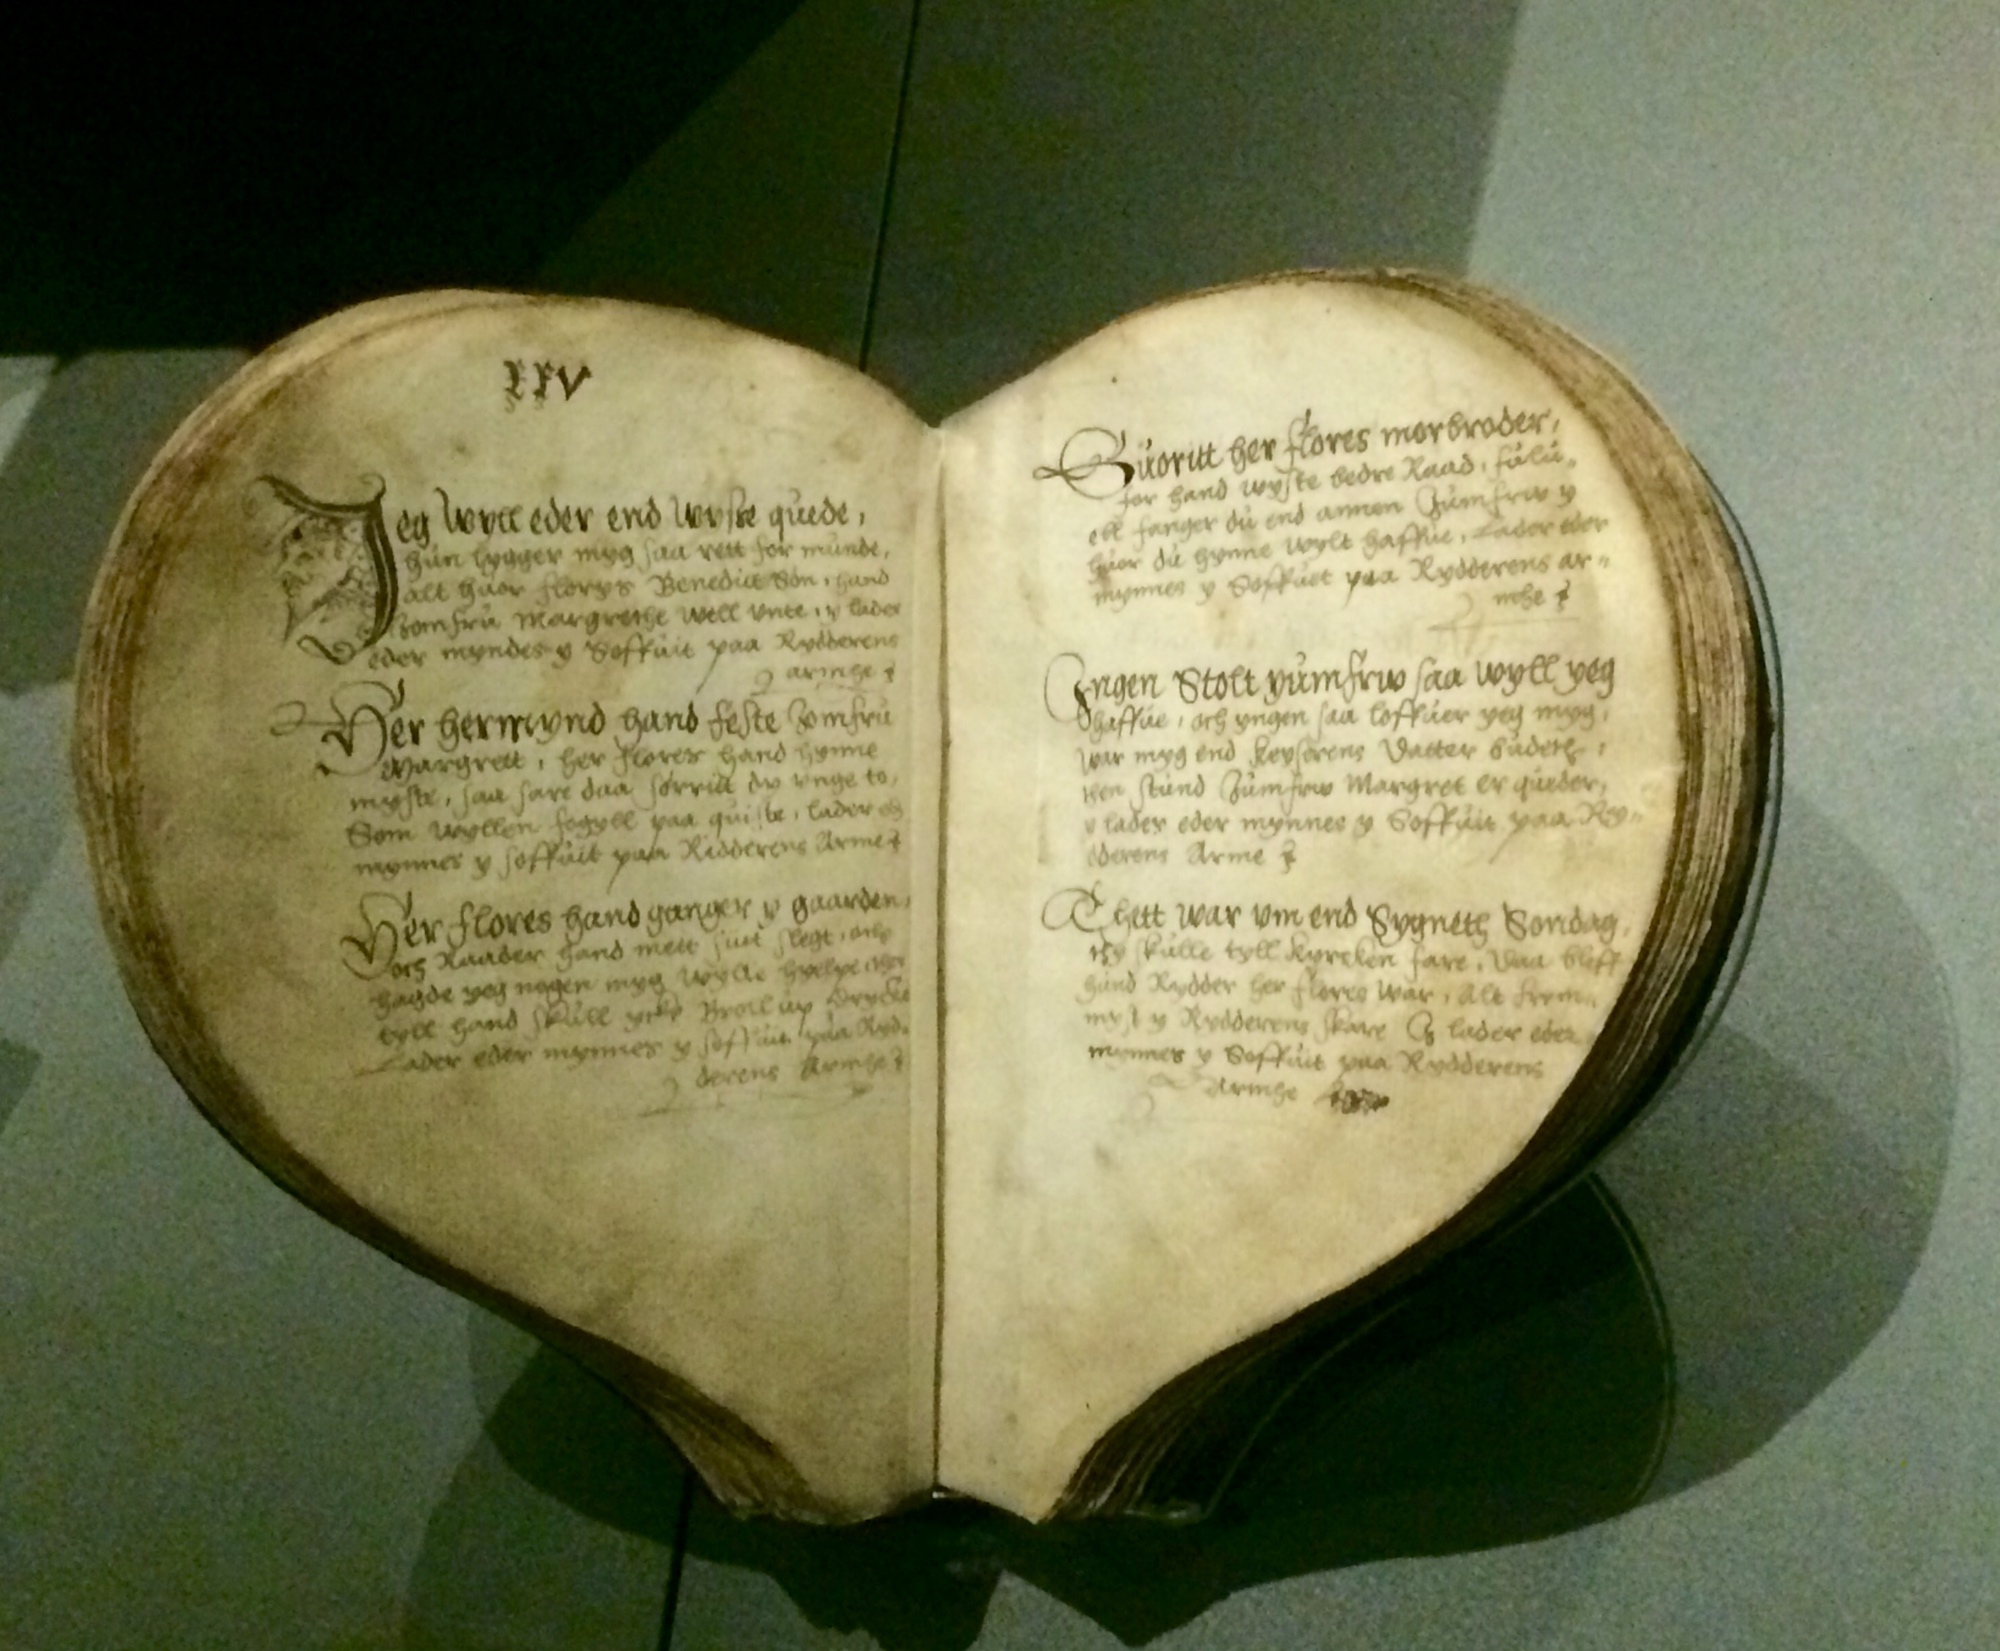 XXV
Jeg wyll eder end wyse quede,
hun lygger myg saa rett for munde,
alt huor florys Benedict Søn, hand
Jomfru Margrethe well vnte, y lader
eder myndes y Soffuit paa Rydderens
armhe
Her hermynd hand feste Jomfru
Margrett, her flores hand hynne
myste, saa sare daa sørritt dy vnge to,
Som wyllen fogyll paa quiste, lader eder
mynnes y soffuit paa Ridderens Arme
Her flores hand ganger y gaarden,
och Raader hand mett siit slegt, och
hagde yeg nogen myg wylle hyelpe
tyll hand skull ycke Brøllup drycke
Lader eder mynnes y soffuit paa Ryd-
derens Armhe
Suoritt her flores morbroder,
for hand wyste bedre Raad, fulu-
ell fanger du end annen Jumfrw y
huor du hynne wylt haffue, Lader eder
mynnes y Soffuet paa Rydderens ar-
mhe
Ingen Stolt yumfrw saa wyll yeg
haffue, och yngen saa loffuer yeg myg,
war myg end keyserens Datter budeth,
then stund Jumfrw Margret er queder,
y lader eder mynnes y Soffuit paa Ry-
dderens Arme
Thett war vm end Sygneth Søndag,
thy skulle tyll kyrcken fare, Daa bleff
hund Rydder her flores war, Alt frem-
myst y Rydderens skare Y lader eder
mynnes y Soffuit paa Rydderens
Armhe